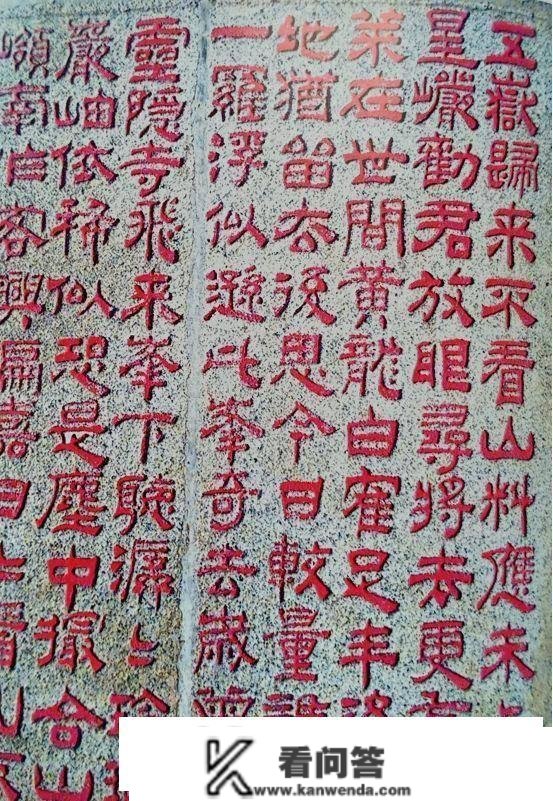 五嶽歸来不看山料應未
星巗勸君放眼尋將去更
萊在世間黃龍白寉足丰
地猶留去後思今日較量
一羅浮似遜此峯奇去歲曾
靈隐寺飛来峯下聽潺〻
巖岫依稀似恐是塵中撮合山
嶺南作客興偏
看问答
www.kanwenda.com